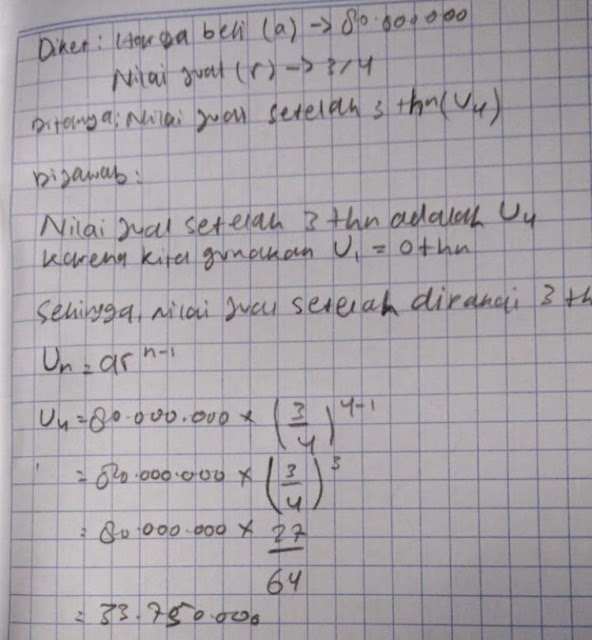 Diket: Harga beli (a) -> 80.000.000
Nilai jual (r) -> 3/4
Ditanya: Nilai jual setelah 3 thn (U4)
Dijawab:
Nilai jual setelah 3 thn adalah U4
karena kita gunakan U1 = 0 thn
Sehingga, nilai jual setelah dipakai 3 th
Un = ar^n-1
U4 = 80.000.000 × (3/4)^4-1
= 80.000.000 × (3/4)^3
= 80.000.000 × 27/64
= 33.750.000